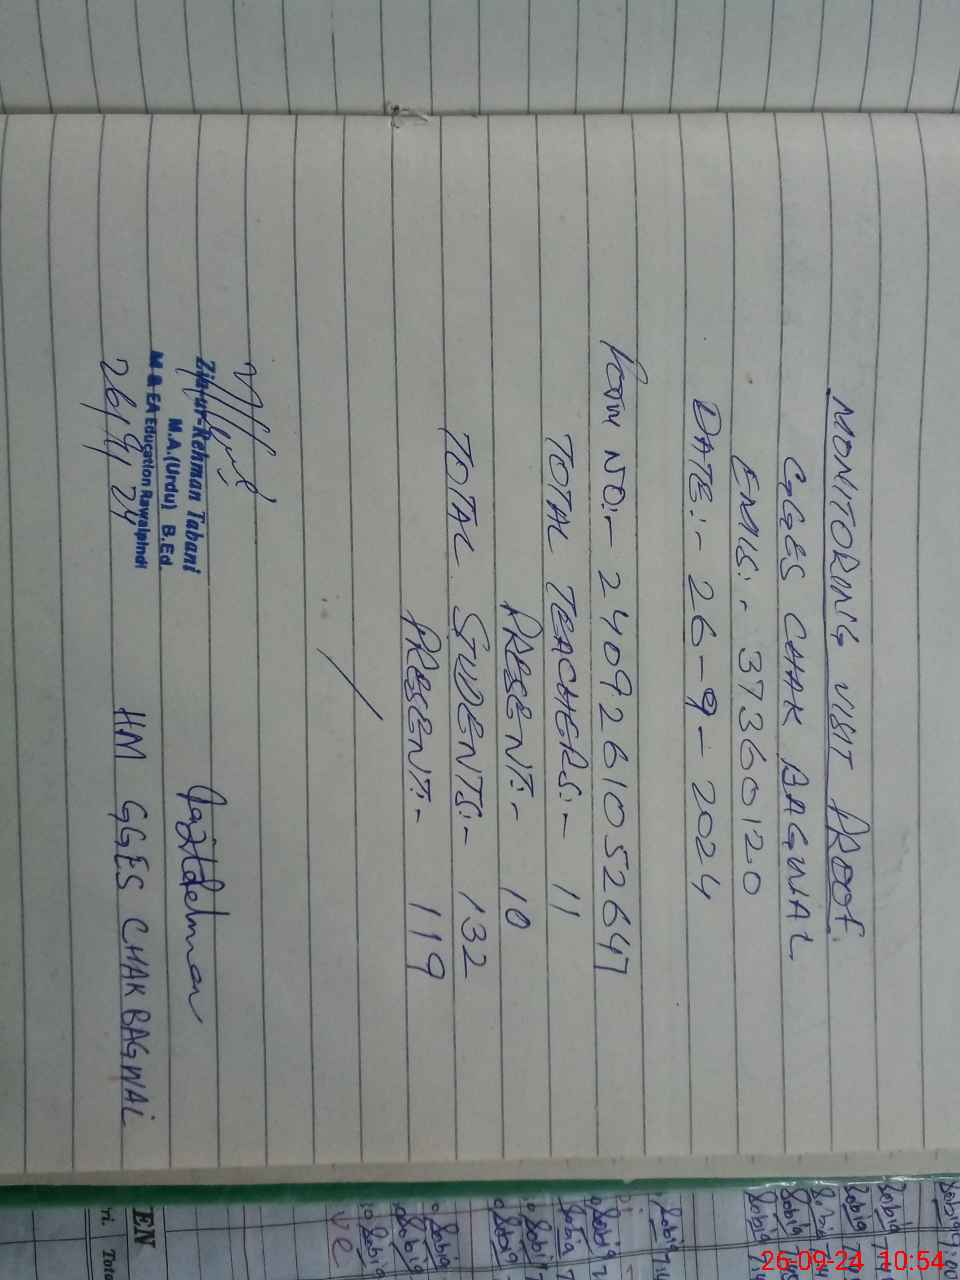 MONITORING VISIT PROOF.
GGES CHAK BAGWAL
EMIS:- 37360120
DATE:- 26-9-2024
FORM NO:- 2409261052647
TOTAL TEACHERS:- 11
PRESENT:- 10
TOTAL STUDENTS:- 132
PRESENT:- 119
Zia-ur-Rehman Tabani
M.A.(Urdu) B.Ed
M & EA Education Rawalpindi
26/9/24
HM GGES CHAK BAGWAL
EN
ri. Tota
26-09-24 10:54